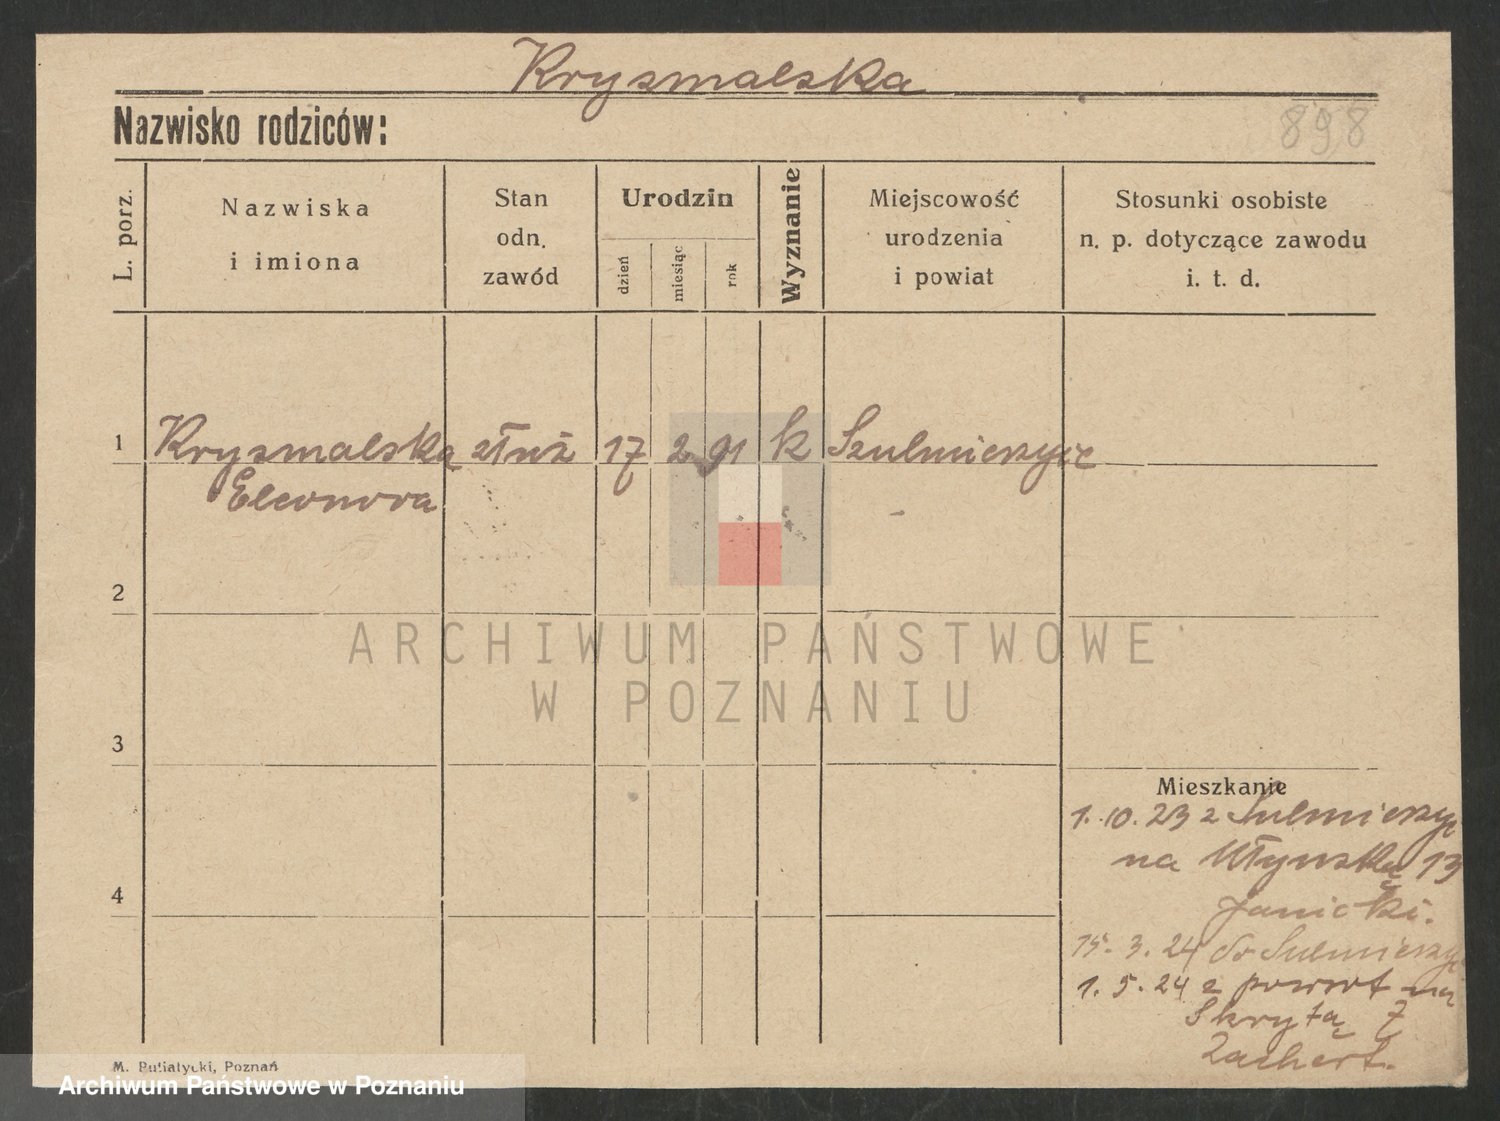 Krysmalska
Nazwisko rodziców:
898
L. porz.
Nazwiska
i imiona
Stan
odn.
zawód
Urodzin
dzień
miesiąc
rok
Wyznanie
Miejscowość
urodzenia
i powiat
Stosunki osobiste
n. p. dotyczące zawodu
i. t. d.
1 Krysmalska służ 17 2 91 k Szulmierzyce
Eleonora
2
3
4
ARCHIWUM PAŃSTWOWE
W POZNANIU
Mieszkanie
1.10.23 z Sulmierzyc
na Młyńską 13
Janicki.
15.3.24 do Sulmierzyc
1.5.24 z powrot na
Skrytą 7
Zachert.
M. Putiatycki, Poznań
Archiwum Państwowe w Poznaniu